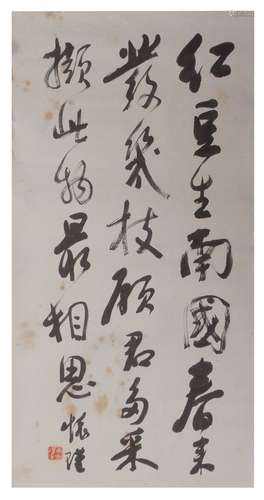 紅豆生南國春來
發幾枝願君多采
擷此物最相思
懷瑾